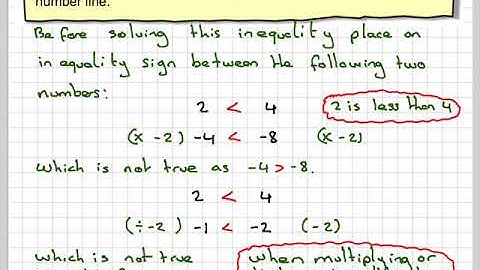 number line.
Before solving this inequality place an
inequality sign between the following two
numbers:
2 < 4 2 is less than 4
(x -2) -4 < -8 (x -2)
which is not true as -4 > -8.
2 < 4
(÷ -2) -1 < -2 (-2)
which is not true when multiplying or